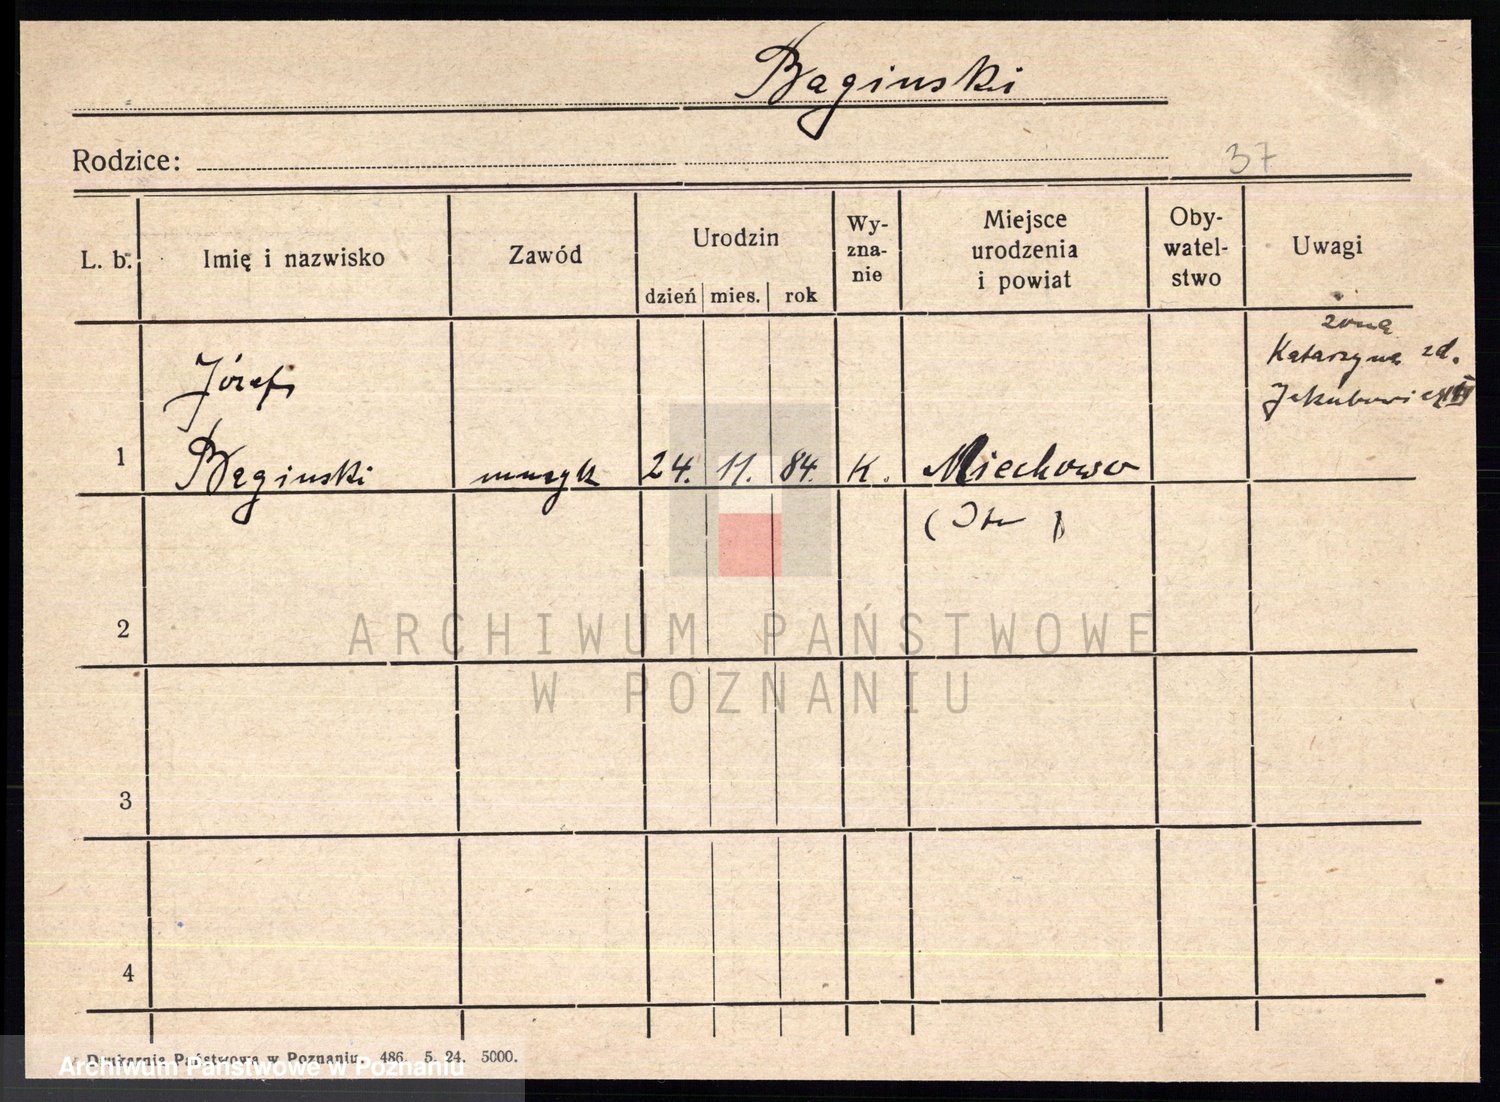 Baginski
Rodzice:
37
L. b.
Imię i nazwisko
Zawód
Urodzin
dzień mies. rok
Wy-
zna-
nie
Miejsce
urodzenia
i powiat
Oby-
watel-
stwo
Uwagi
żona
Katarzyna zd.
Jakubowicz
Józef
1 Baginski muzyk 24. 11. 84. K. Miechowo
2
3
4
ARCHIWUM PAŃSTWOWE
W POZNANIU
Drukarnia Państwowa w Poznaniu. 486. 5. 24. 5000.
Archiwum Państwowe w Poznaniu